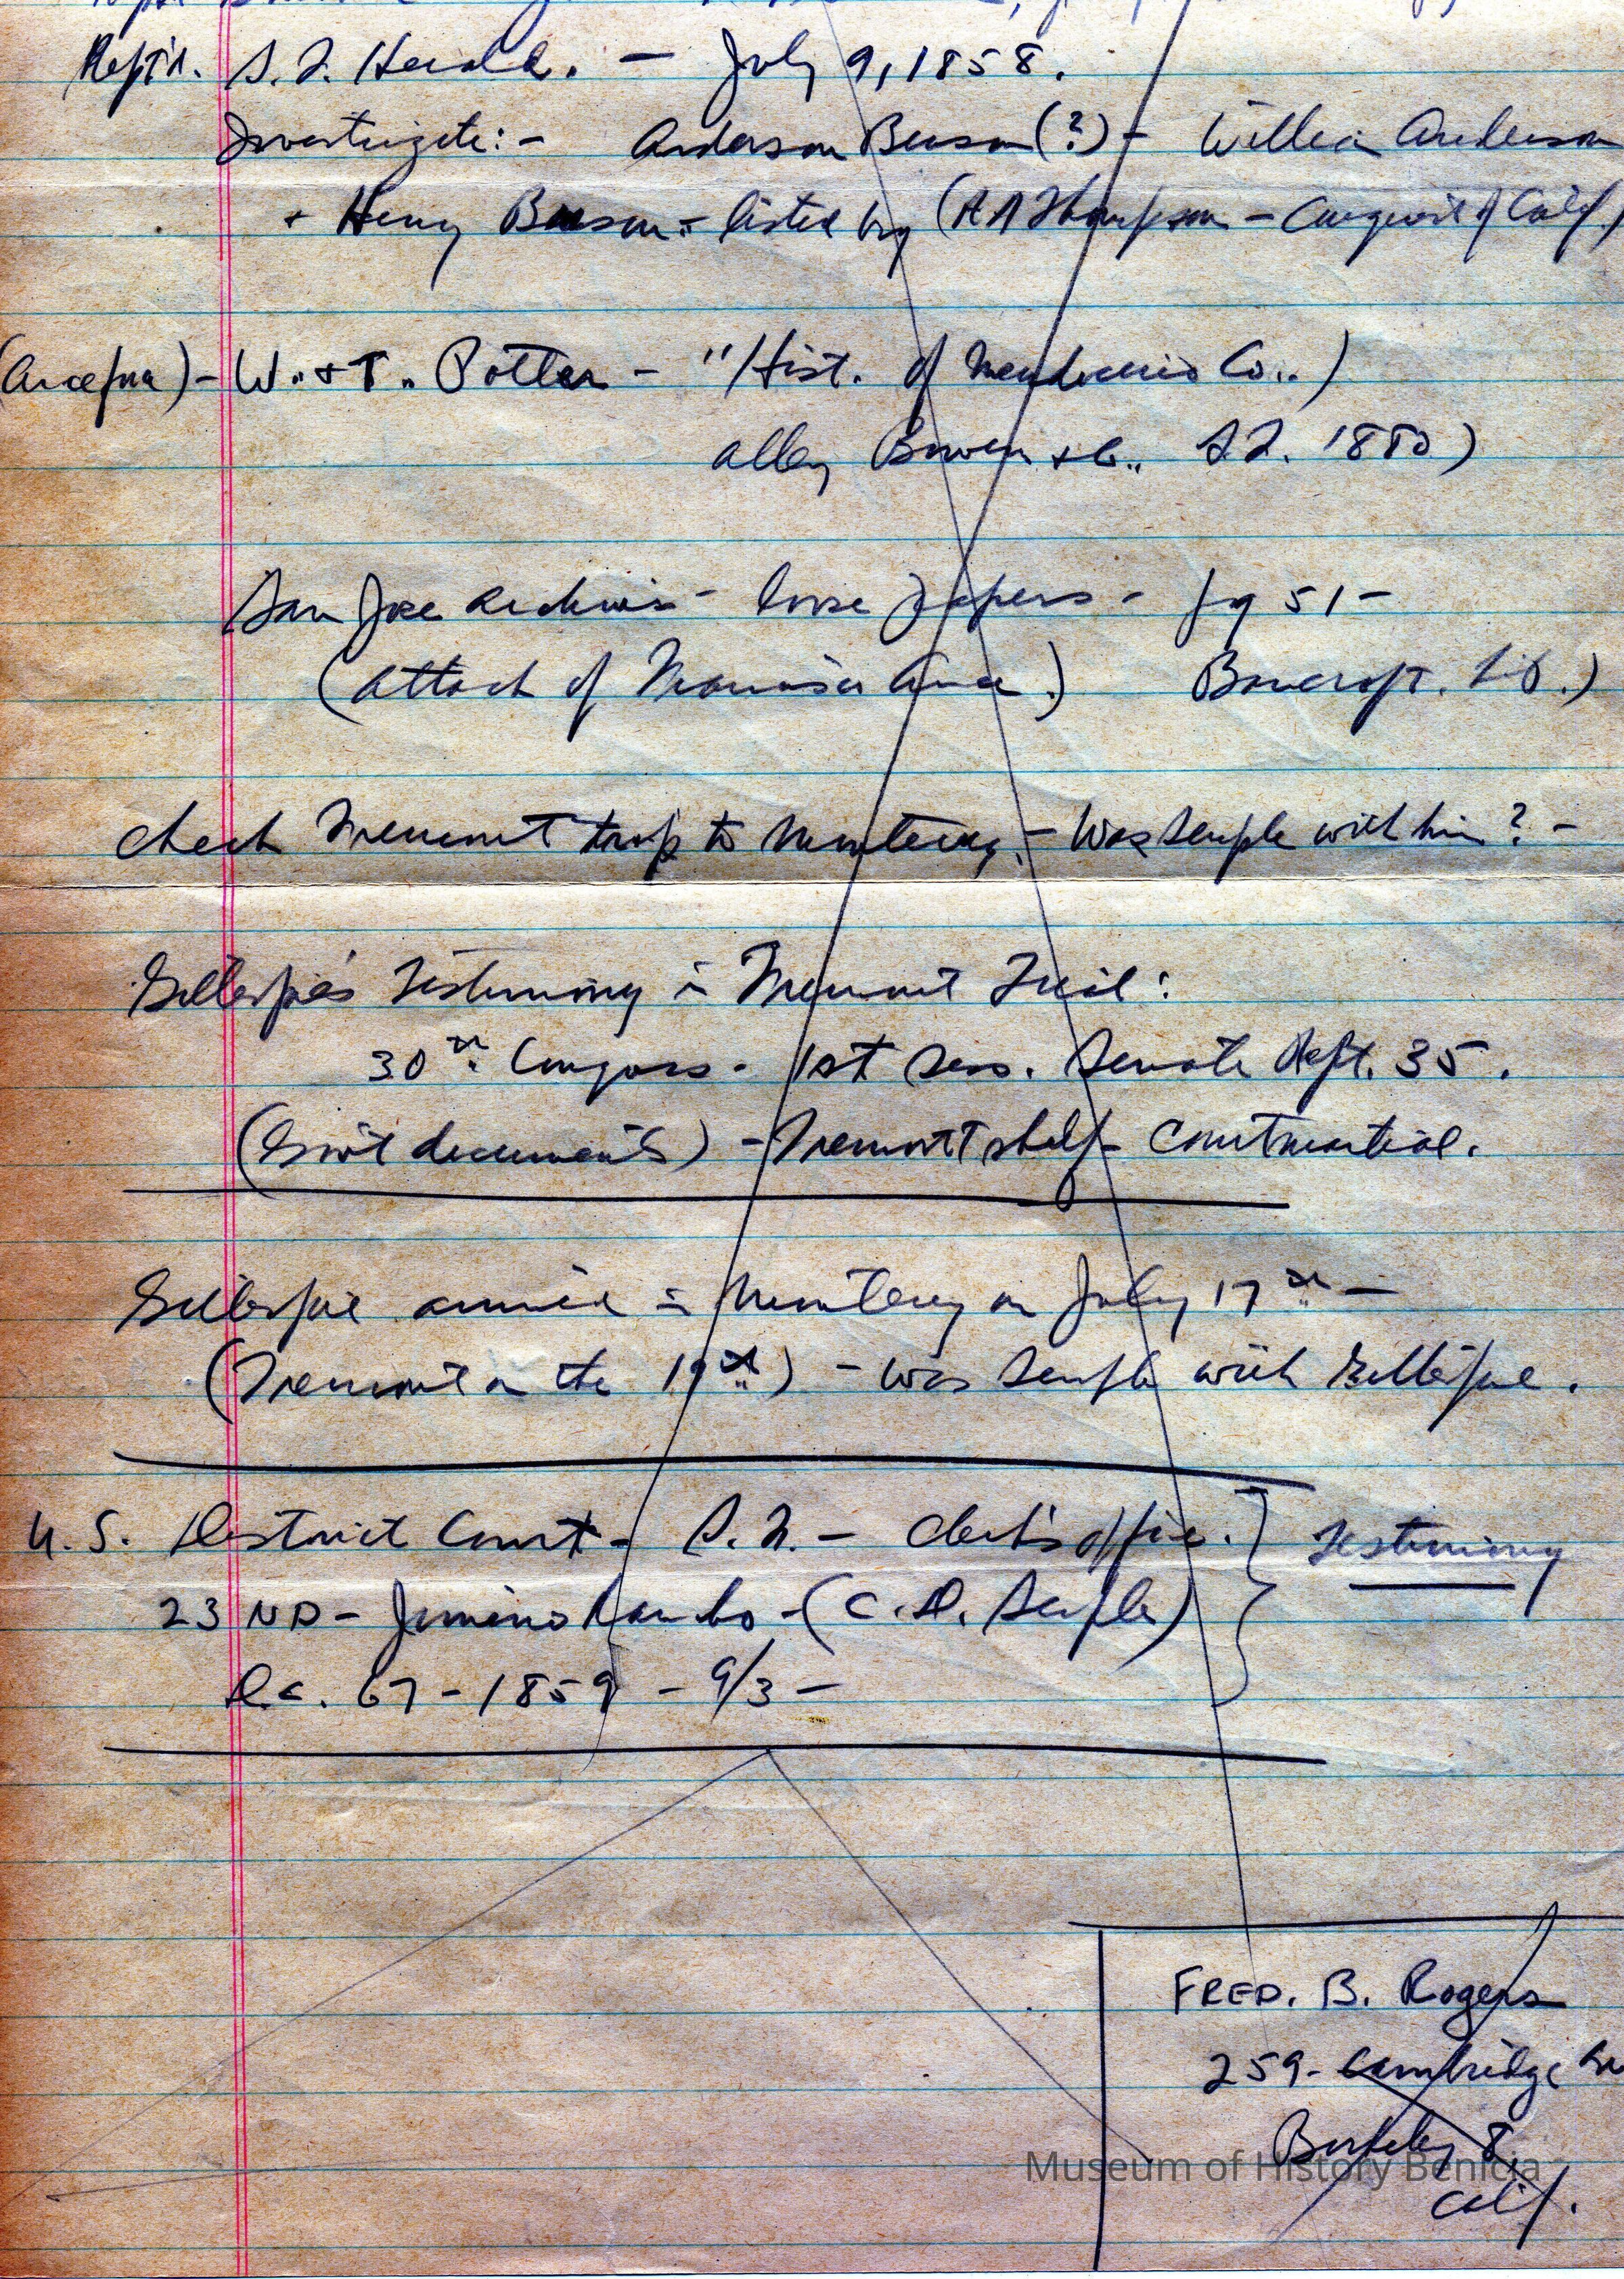 Rept'd. S. F. Herald. — July 9, 1858.
Investigate:- Anderson Beeson (?) - William Anderson
+ Henry Beeson - listed by (R A Thompson - Conquest of Calif.)
(Arce fma) - W. + T. Potter - "Hist. of Mendocino Co..)
Alley Bowen + Co.. S. F. 1880)
San Jose Archives - loose papers - pg 51 -
(attach of Francisco Arce.) Bancroft. Lib.)
Check Fremont trip to Monterey. - Was Semple with him? -
Gillespie's Testimony in Fremont Trial:
30th Congress. 1st Sess. Senate Rept. 35.
(Gov't documents) - Fremont shelf - Courtmartial.
Gillespie arrived in Monterey on July 17th —
(Fremont on the 19th) - was Semple with Gillespie.
U. S. District Court - S. F. - Clerk's office. } Testimony
23 ND - Jimino Rancho - (C. D. Semple)
67 - 1859 - 9/3 -
FRED. B. Rogers
259 - Cambridge
Berkeley 8
Calif.
Museum of History Benicia